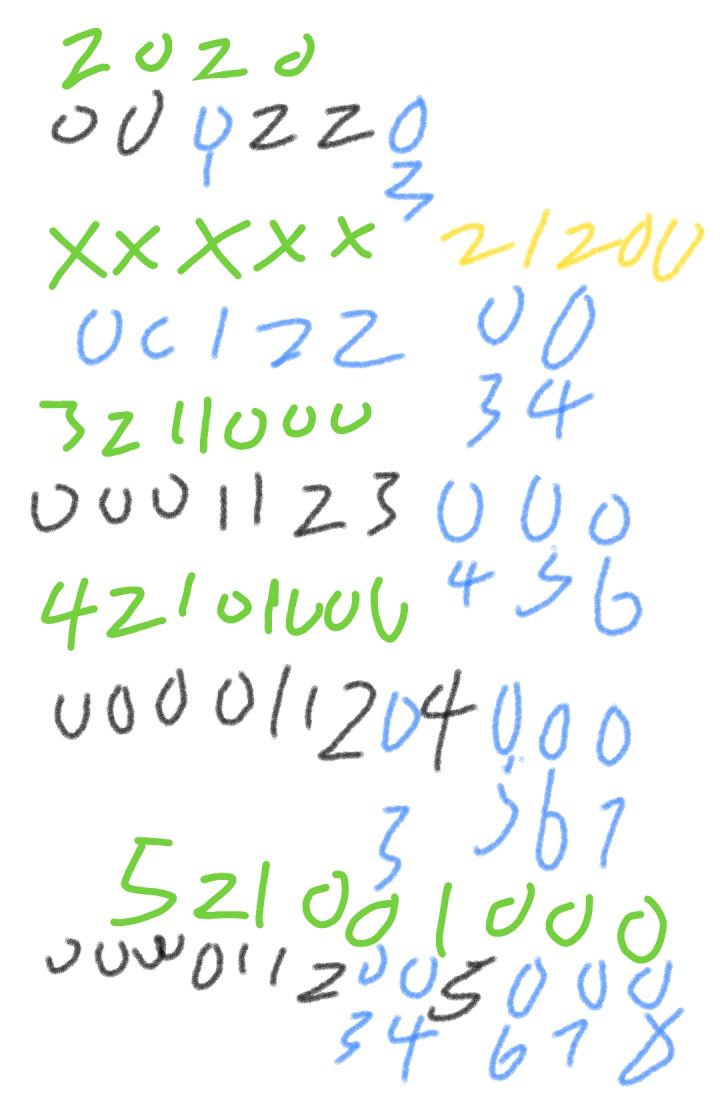 2020
000220
3
XXXXX 21200
00122 00
34
3211000
0001123 000
42101000 456
000011204 000
3 567
5210001000
00000112005000
34 678